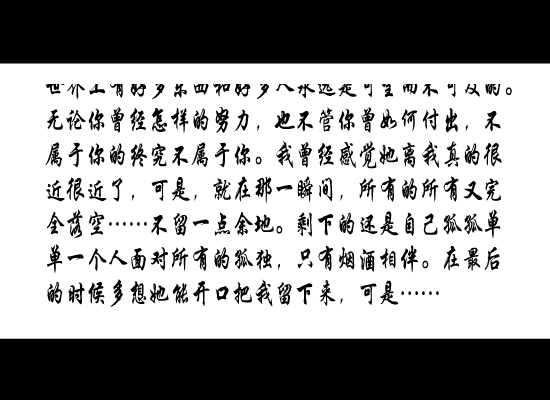 世界上有好多东西和好多人永远是可望而不可及的。
无论你曾经怎样的努力，也不管你曾如何付出，不
属于你的终究不属于你。我曾经感觉她离我真的很
近很近了，可是，就在那一瞬间，所有的所有又完
全落空……不留一点余地。剩下的还是自己孤孤单
单一个人面对所有的孤独，只有烟酒相伴。在最后
的时候多想她能开口把我留下来，可是……